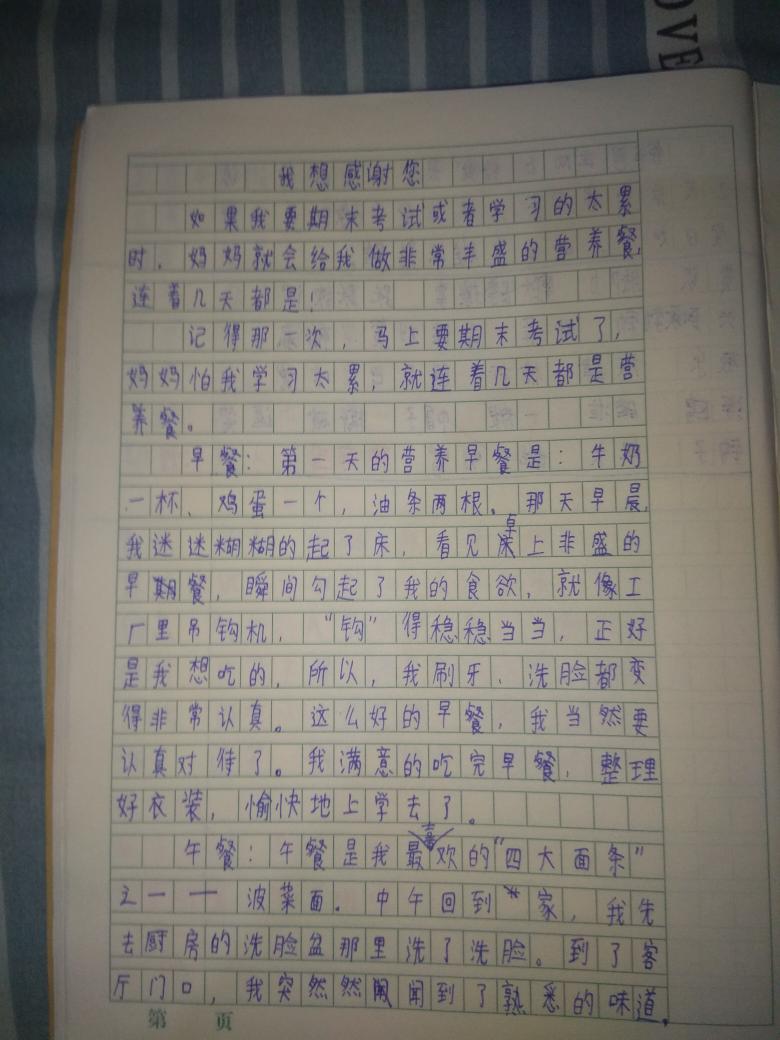 OVE
我想感谢您
如果我要期末考试或者学习的太累
时,妈妈就会给我做非常丰盛的营养餐,
连着几天都是!
记得那一次,马上要期末考试了,
妈妈怕我学习太累,就连着几天都是营
养餐。
早餐:第一天的营养早餐是:牛奶
一杯、鸡蛋一个,油条两根。那天早晨,
我迷迷糊糊的起了床,看见桌上非盛的
早餐,瞬间勾起了我的食欲,就像工
厂里吊钩机,“钩”得稳稳当当,正好
是我想吃的,所以,我刷牙、洗脸都变
得非常认真。这么好的早餐,我当然要
认真对待了。我满意的吃完早餐,整理
好衣装,愉快地上学去了。
午餐:午餐是我最喜欢的“四大面条”
之一——波菜面。中午回到家,我先
去厨房的洗脸盆那里洗了洗脸。到了客
厅门口,我突然然闻到了熟悉的味道。
第 页